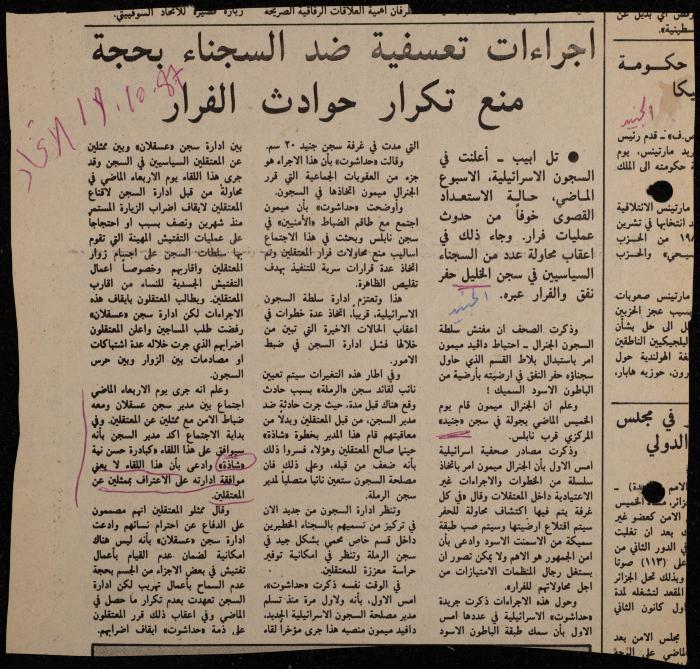 طرفان اهمية العلاقات الرفاقية الصريحة
زيارة قصيرة للاتحاد السوفييتي.
اجراءات تعسفية ضد السجناء بحجة
منع تكرار حوادث الفرار
الاتحاد 19.10.87
● تل ابيب ـ أعلنت في
السجون الاسرائيلية، الاسبوع
الماضي، حالة الاستعداد
القصوى خوفاً من حدوث
عمليات فرار. وجاء ذلك في
اعقاب محاولة عدد من السجناء
السياسيين في سجن الخليل حفر
نفق والفرار عبره.
الجنيد
وذكرت الصحف ان مفتش سلطة
السجون الجنرال ـ احتياط دافيد ميمون
امر باستبدال بلاط القسم الذي حاول
سجناؤه حفر النفق في ارضيته بأرضية من
الباطون الاسود السميك !
وعلم ان الجنرال ميمون قام يوم
الخميس الماضي بجولة في سجن «جنيد»
المركزي قرب نابلس.
وذكرت مصادر صحفية اسرائيلية
امس الاول بأن الجنرال ميمون امر باتخاذ
سلسلة من الخطوات والاجراءات غير
الاعتيادية داخل المعتقلات وقال «في كل
غرفة يتم فيها إكتشاف محاولة للحفر
سيتم اقتلاع ارضيتها وسيتم صب طبقة
سميكة من الاسمنت الاسود وادعى بأن
امن الجمهور هو الاهم ولا يمكن تصور ان
يستغل رجال المنظمات الامتيازات من
اجل محاولاتهم للفرار».
وحول هذه الاجراءات ذكرت جريدة
«حداشوت» الاسرائيلية في عددها امس
الاول بأن سمك طبقة الباطون الاسود
التي مدت في غرفة سجن جنيد ٢٠ سم.
وقالت «حداشوت» بأن هذا الاجراء هو
جزء من العقوبات الجماعية التي قرر
الجنرال ميمون اتخاذها في السجون.
وأوضحت «حداشوت» بأن ميمون
اجتمع مع طاقم الضباط «الأمنيين» في
سجن نابلس وبحثت في هذا الاجتماع
اساليب منع محاولات فرار المعتقلين وتم
اتخاذ عدة قرارات سرية للتنفيذ بهدف
تقليص الظاهرة.
هذا وتعتزم ادارة سلطة السجون
الاسرائيلية، قريباً، اتخاذ عدة خطوات في
اعقاب الحالات الاخيرة التي تبين من
خلالها فشل ادارة السجن في ضبط
الامور.
وفي اطار هذه التغييرات سيتم تعيين
نائب لقائد سجن «الرملة» بسبب حادث
وقع هناك قبل مدة، حيث جرت حادثة ضد
مدير السجن، من قبل المعتقلين وبدلاً من
معاقبتهم قام هذا المدير بخطوة «شاذة»
حينما صالح المعتقلين وهؤلاء فسروا ذلك
بأنه ضعف من قبله، وعلى ذلك فان
مصلحة السجون ستعين نائبا متصلبا لمدير
سجن الرملة.
وتنظر ادارة السجون من جديد الان
في تركيز من تسميهم بالسجناء الخطيرين
داخل قسم خاص محمي بشكل جيد في
سجن الرملة وتنظر في امكانية توفير
حراسة معززة للمعتقلين.
في الوقت نفسه ذكرت «حداشوت»،
امس الاول، بأنه ولاول مرة منذ تسلم
مدير مصلحة السجون الاسرائيلية الجديد،
دافيد ميمون منصبه هذا جرى مؤخراً لقاء
بين ادارة سجن «عسقلان» وبين ممثلين
عن المعتقلين السياسيين في السجن وقد
جرى هذا اللقاء يوم الاربعاء الماضي في
محاولة من قبل ادارة السجن لاقناع
المعتقلين لايقاف اضراب الزيارة المستمر
منذ شهرين ونصف بسبب او احتجاجا
على عمليات التفتيش المهينة التي تقوم
بها سلطات السجن على اجسام زوار
المعتقلين واقاربهم وخصوصاً اعمال
التفتيش الجسدية للنساء من اقارب
المعتقلين. ويطالب المعتقلون بايقاف هذه
الاجراءات لكن ادارة سجن «عسقلان»
رفضت طلب المساجين واعلن المعتقلون
اضرابهم الذي جرت خلاله عدة اشتباكات
او مصادمات بين الزوار وبين حرس
السجون.
وعلم انه جرى يوم الاربعاء الماضي
اجتماع بين مدير سجن عسقلان ومعه
ضباط الامن مع ممثلين عن المعتقلين. وفي
بداية الاجتماع اكد مدير السجن بأنه
سيوافق على هذا اللقاء «كبادرة حسن نية
«شاذة» وادعى بأن هذا اللقاء لا يعني
موافقة ادارته على الاعتراف بممثلين عن
المعتقلين.
وقال ممثلو المعتقلين انهم مصممون
على الدفاع عن احترام نسائهم وادعت
ادارة سجن «عسقلان» بأنه ليس هناك
امكانية لضمان عدم القيام بأعمال
تفتيش في بعض الاجزاء من الجسم بحجة
عدم السماح بأعمال تهريب لكن ادارة
السجن تعهدت بعدم تكرار ما حصل في
الماضي وفي اعقاب ذلك قرر المعتقلون
على ذمة «حداشوت» ايقاف اضرابهم.
حكومة
الجنيد
ـ قدم رئيس
مارتينس، يوم
حكومته الى الملك
مارتينس الائتلافية
انتخابها في تشرين
من الحزب
والحزب
مارتينس صعوبات
بسبب عجز الحزبين
الى حل بشأن
البلجيكيين الناطقين
الهولندية حول
حوزيه هابار،
في مجلس
الدولي
الخميس
الامن كعضو غير
بعد ان تغلبت
في الدور الثاني من
على (١١٣) صوتا
وبذلك تحل الجزائر
المقعد لتشغله لمدة
كانون الثاني
مجلس الامن بعد